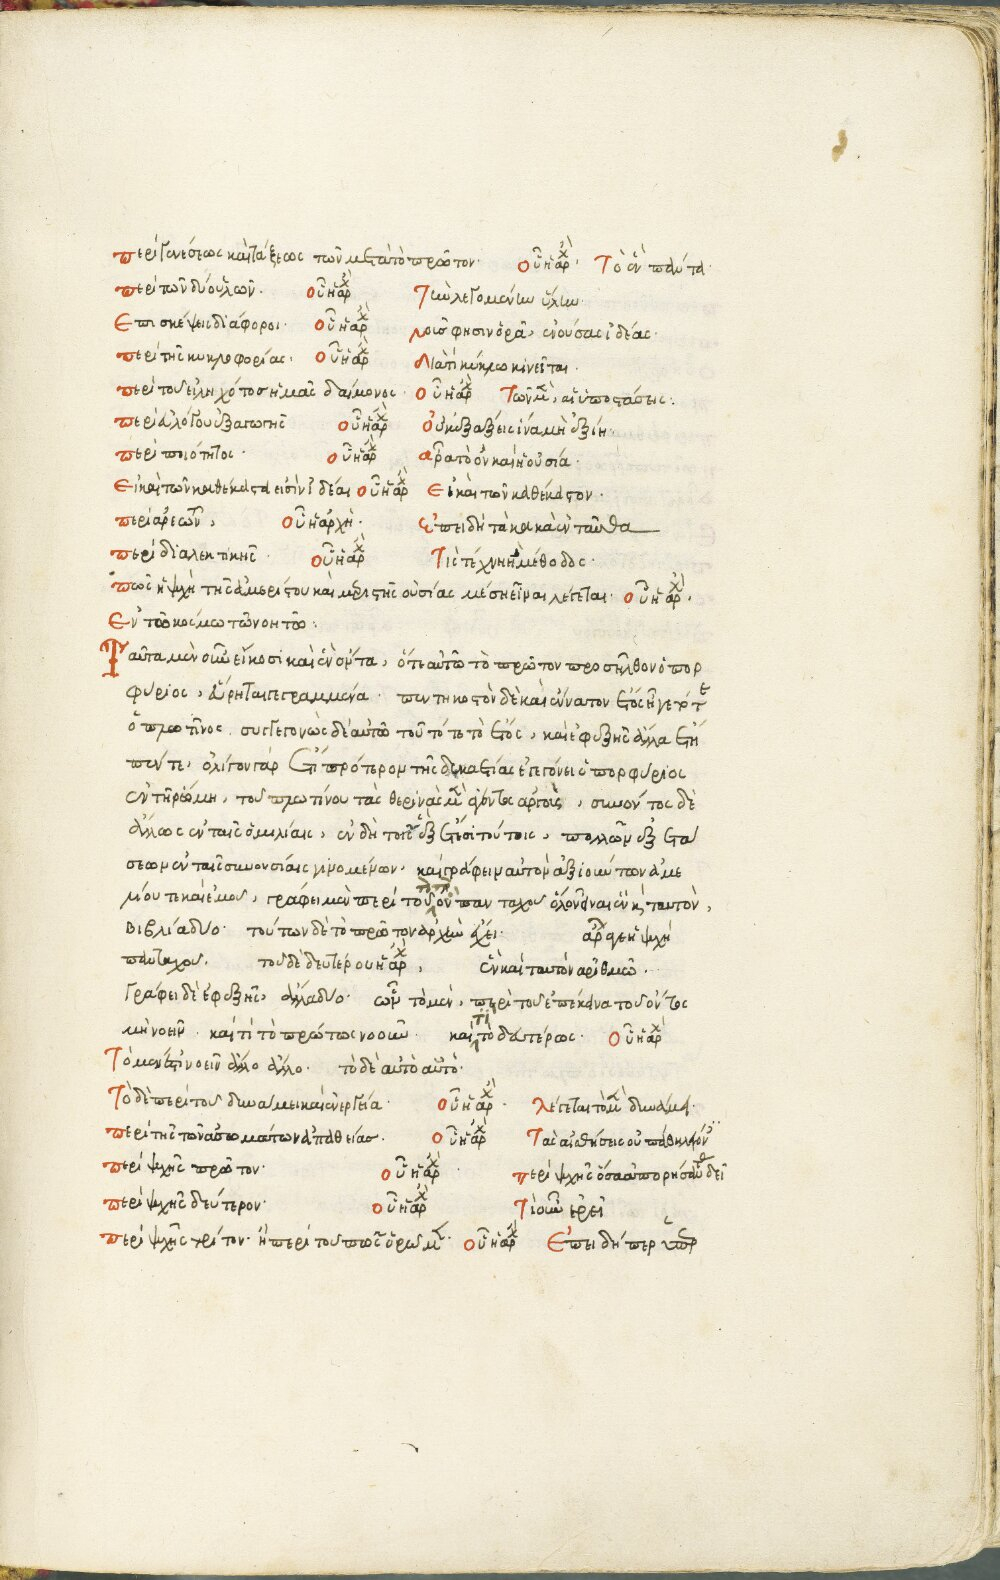 περὶ γενέσεως καὶ τάξεως τῶν μετὰ τὸ πρῶτον· οὗ ἡ ἀρχή· Τὸ ἓν πάντα·
περὶ τῶν δύο ὑλῶν· οὗ ἡ ἀρχή Τὴν λεγομένην ὕλην·
Ἐπισκέψεις διάφοροι· οὗ ἡ ἀρχή νοῦς φησὶν ὁρᾶ, ἐνούσας ἰδέας·
περὶ τῆς κυκλοφορίας· οὗ ἡ ἀρχή Διατί κύκλω κινεῖται·
περὶ τοῦ εἰληχότος ἡμᾶς δαίμονος· οὗ ἡ ἀρχή Τῶν μὲν, αἱ ὑποστάσεις:
περὶ εὐλόγου ἐξαγωγῆς οὗ ἡ ἀρχή Οὐκ ἐξάξεις ἵνα μὴ ἐξίῃ·
περὶ ποιότητος· οὗ ἡ ἀρχή ἆρα τὸ ὂν καὶ ἡ οὐσία·
Εἰ καὶ τῶν καθέκαστα εἰσὶν ἰδέαι οὗ ἡ ἀρχή Εἰ καὶ τῶν καθέκαστον·
περὶ ἀρετῶν, οὗ ἡ ἀρχὴ· ἐπειδὴ τὰ κακὰ ἐνταῦθα
περὶ διαλεκτικῆς· οὗ ἡ ἀρχή Τίς τέχνη ἢ μέθοδος·
πῶς ἡ ψυχὴ τῆς ἀμερίστου καὶ μεριστῆς οὐσίας μέση εἶναι λέγεται· οὗ ἡ ἀρχή·
Ἐν τῶ κόσμω τῶ νοητῶ:
Ταῦτα μὲν οὖν εἴκοσι καὶ ἓν ὄντα, ὅτε αὐτῶ τὸ πρῶτον προσῆλθον ὁ πορ
φύριος, εὕρηται γεγραμμένα· πεντηκοστὸν δὲ καὶ ἔννατον ἔτος ἦγε τότε
ὁ πλωτῖνος· συγγεγονὼς δὲ αὐτῶ τοῦτό τε τὸ ἔτος, καὶ ἐφεξῆς ἄλλα ἔτη
πέντε, ὀλίγον γὰρ ἔτι πρότερον τῆς δεκαετίας ἐγεγόνει ὁ πορφύριος
ἐν τῆ ῥώμη, τοῦ πλωτίνου τὰς θερινὰς μὲν ἄγοντος ἀργοὺς, συνόντος δὲ
ἄλλως ἐν ταῖς ὁμιλίαις, ἐν δὴ τοῖς ἓξ ἔτεσι τούτοις, πολλῶν ἐξετά
σεων ἐν ταῖς συνουσίαις γινομένων, καὶ γράφειν αὐτὸν ἀξιούντων ἀμε
λίου τε καὶ ἐμοῦ, γράφει μὲν περὶ τοῦ τί τὸ ὂν πανταχοῦ ὅλον εἶναι ἓν καὶ ταυτὸν,
βιβλία δύο· τούτων δὲ τὸ πρῶτον ἀρχὴν ἔχει· ἆρά γε ἡ ψυχὴ
πανταχοῦ· τοῦ δὲ δευτέρου ἡ ἀρχή, ἓν καὶ ταυτὸν ἀριθμῶ·
Γράφει δὲ ἐφεξῆς, ἄλλα δύο· ὧν τὸ μὲν, περὶ τοῦ ἐπέκεινα τοῦ ὄντος
μὴ νοεῖν· καὶ τί τὸ πρώτως νοοῦν· καὶ τί τὸ δευτέρως· οὗ ἡ ἀρχή
Τὸ μέν ἐστι νοεῖν ἄλλο ἄλλο· τὸ δὲ αὐτὸ αὐτό·
Τὸ δὲ περὶ τοῦ δυνάμει καὶ ἐνεργεία· οὗ ἡ ἀρχή· λέγεται τὸ μὲν δυνάμει·
περὶ τῆς τῶν ἀσωμάτων ἀπαθείας· οὗ ἡ ἀρχή Τὰς αἰσθήσεις οὐ πάθη λέγον
περὶ ψυχῆς πρῶτον· οὗ ἡ ἀρχή· περὶ ψυχῆς ὅσα ἀπορήσαντας δεῖ
περὶ ψυχῆς δεύτερον· οὗ ἡ ἀρχή Τί οὖν ἐρεῖ
περὶ ψυχῆς τρίτον· ἢ περὶ τοῦ πῶς ὁρῶμεν· οὗ ἡ ἀρχή Ἐπειδήπερ